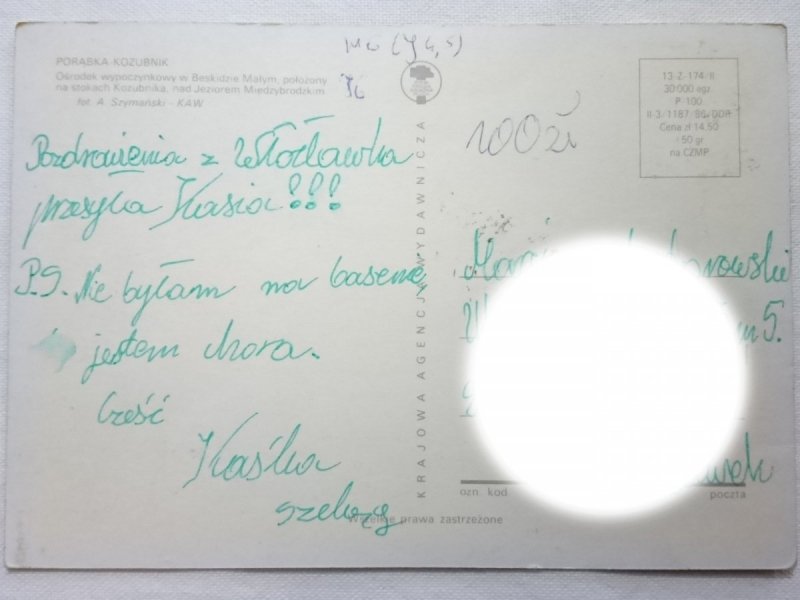 PORĄBKA KOZUBNIK
Ośrodek wypoczynkowy w Beskidzie Małym, położony
na stokach Kozubnika, nad Jeziorem Międzybrodzkim
fot. A. Szymański - KAW
Pozdrowienia z Włocławka
przesyła Kasia!!!
P.S. Nie byłam na basenie
jestem chora.
Cześć
Kaśka
KRAJOWA AGENCJA WYDAWNICZA
100 zł
13-Z-174/II
30 000 egz.
P-100
II-3/1187/86/DDR
Cena zł 14,50
50 gr
na CZMP
5.
ozn. kod
poczta
Wszelkie prawa zastrzeżone